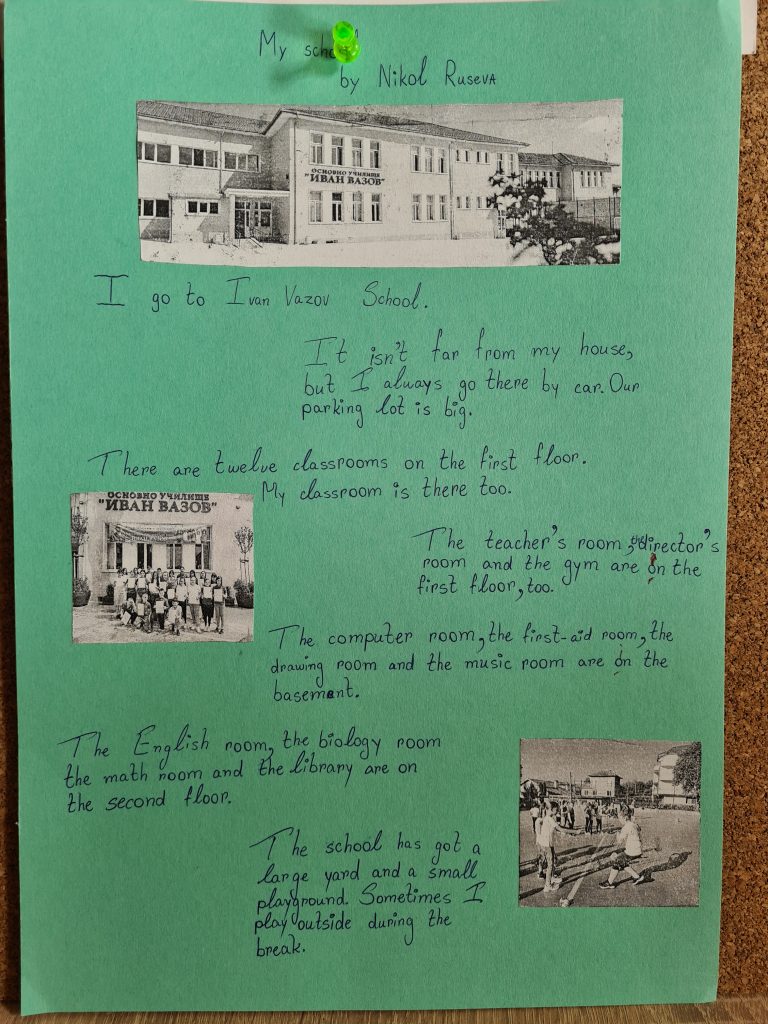 My school
by Nikol Ruseva
ОСНОВНО УЧИЛИЩЕ
"ИВАН ВАЗОВ"
I go to Ivan Vazov School.
It isn't far from my house,
but I always go there by car. Our
parking lot is big.
There are twelve classrooms on the first floor.
My classroom is there too.
ОСНОВНО УЧИЛИЩЕ
"ИВАН ВАЗОВ"
The teacher's room, the director's
room and the gym are on the
first floor, too.
The computer room, the first-aid room, the
drawing room and the music room are on the
basement.
The English room, the biology room
the math room and the library are on
the second floor.
The school has got a
large yard and a small
playground. Sometimes I
play outside during the
break.